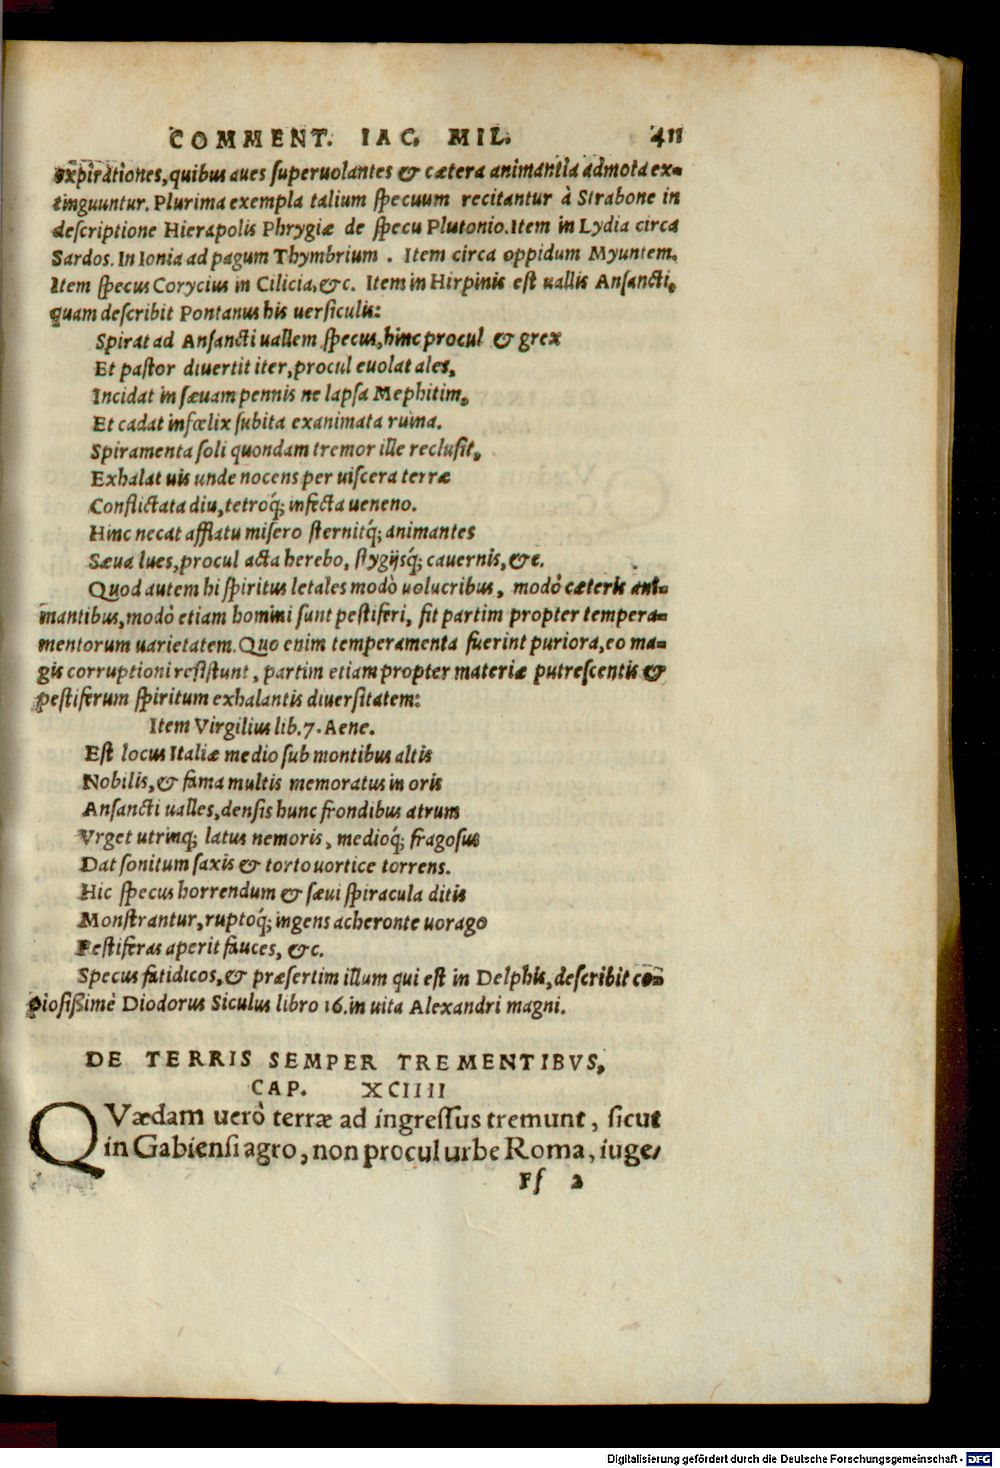 COMMENT. IAC. MIL. 411
expirationes, quibus aues superuolantes & cætera animantia admota ex-
tinguuntur. Plurima exempla talium specuum recitantur à Strabone in
descriptione Hierapolis Phrygiæ de specu Plutonio. Item in Lydia circa
Sardos. In Ionia ad pagum Thymbrium. Item circa oppidum Myuntem.
Item specus Corycius in Cilicia, &c. Item in Hirpinis est uallis Ansancti,
quam describit Pontanus his uersiculis:
Spirat ad Ansancti uallem specus, hinc procul & grex
Et pastor diuertit iter, procul euolat ales,
Incidat in sæuam pennis ne lapsa Mephitim,
Et cadat infœlix subita exanimata ruina.
Spiramenta soli quondam tremor ille reclusit,
Exhalat uis unde nocens per uiscera terræ
Conflictata diu, tetroq́; infecta ueneno.
Hinc necat afflatu misero sternitq́; animantes
Sæua lues, procul acta herebo, stygijsq́; cauernis, &c.
Quod autem hi spiritus letales modò uolucribus, modò cæteris ani-
mantibus, modò etiam homini sunt pestiferi, fit partim propter tempera-
mentorum uarietatem. Quo enim temperamenta fuerint puriora, eo ma-
gis corruptioni resistunt, partim etiam propter materiæ putrescentis &
pestiferum spiritum exhalantis diuersitatem:
Item Virgilius lib. 7. Aene.
Est locus Italiæ medio sub montibus altis
Nobilis, & fama multis memoratus in oris
Ansancti ualles, densis hunc frondibus atrum
Vrget utrinq; latus nemoris, medioq́; fragosus
Dat sonitum saxis & torto uortice torrens.
Hic specus horrendum & sæui spiracula ditis
Monstrantur, ruptoq́; ingens acheronte uorago
Pestiferas aperit fauces, &c.
Specus fatidicos, & præsertim illum qui est in Delphis, describit co-
piosißimè Diodorus Siculus libro 16. in uita Alexandri magni.
DE TERRIS SEMPER TREMENTIBVS,
CAP. XCIIII
QVædam uerò terræ ad ingressus tremunt, sicut
in Gabiensi agro, non procul urbe Roma, iuge-
Ff 2
Digitalisierung gefördert durch die Deutsche Forschungsgemeinschaft - DFG